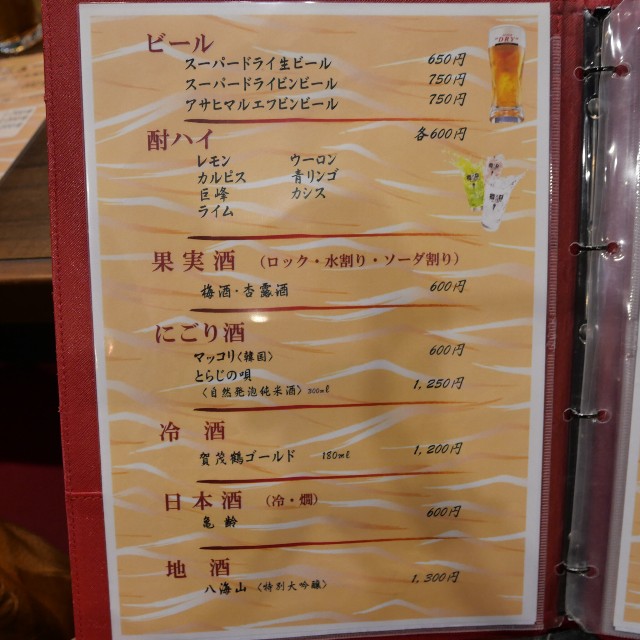 ビール
スーパードライ生ビール 650円
スーパードライビンビール 750円
アサヒマルエフビンビール 750円
酎ハイ 各600円
レモン ウーロン
カルピス 青リンゴ
巨峰 カシス
ライム
果実酒 （ロック・水割り・ソーダ割り）
梅酒・杏露酒 600円
にごり酒
マッコリ〈韓国〉 600円
とらじの唄 1,250円
〈自然発泡純米酒〉 300ml
冷酒
賀茂鶴ゴールド 180ml 1,200円
日本酒 （冷・燗）
亀齢 600円
地酒
八海山 〈特別大吟醸〉 1,300円